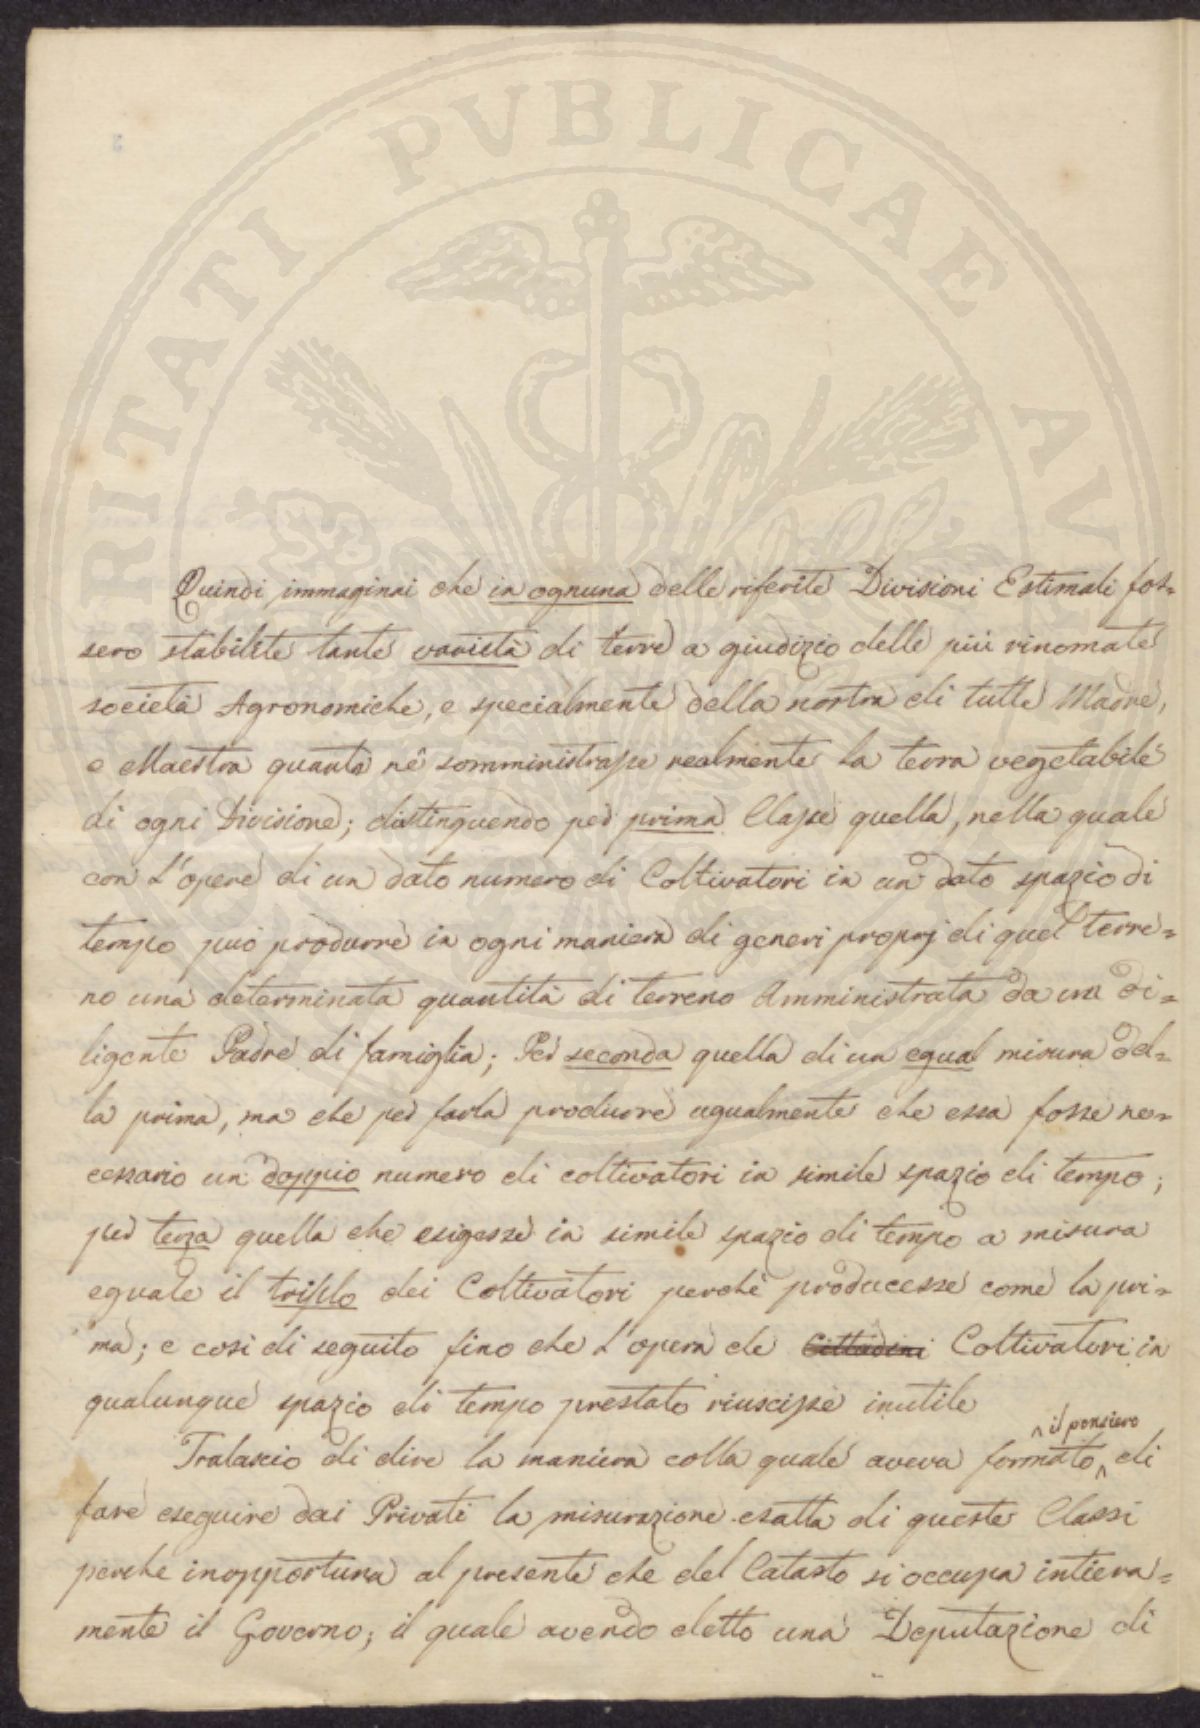 PROSPERITATI PVBLICAE AV
Quindi immaginai che in ognuna delle riferite Divisioni Estimali fos=
sero stabilite tante varietà di terre a giudizio delle più rinomate
società Agronomiche, e specialmente della nostra di tutte Madre,
e Maestra quanta nè somministrasse realmente la terra vegetabile
di ogni Divisione; distinguendo per prima Classe quella, nella quale
con l'opere di un dato numero di Coltivatori in un dato spazio di
tempo può produrre in ogni maniera di generi proprj di quel terre=
no una determinata quantità di terreno Amministrata da un di=
ligente Padre di famiglia; Per seconda quella di un egual misura del=
la prima, ma che per farla produrre ugualmente che essa fosse ne=
cessario un doppio numero di coltivatori in simile spazio di tempo;
per terza quella che esigesse in simile spazio di tempo a misura
eguale il triplo dei Coltivatori perchè producesse come la pri=
ma; e così di seguito fino che l'opera de Cittadini Coltivatori in
qualunque spazio di tempo prestato riuscisse inutile
^ il pensiero
Tralascio di dire la maniera colla quale aveva formato ^ di
fare eseguire dai Privati la misurazione esatta di queste Classi
perche inopportuna al presente che del Catasto si occupa intiera=
mente il Governo; il quale avendo eletto una Deputazione di